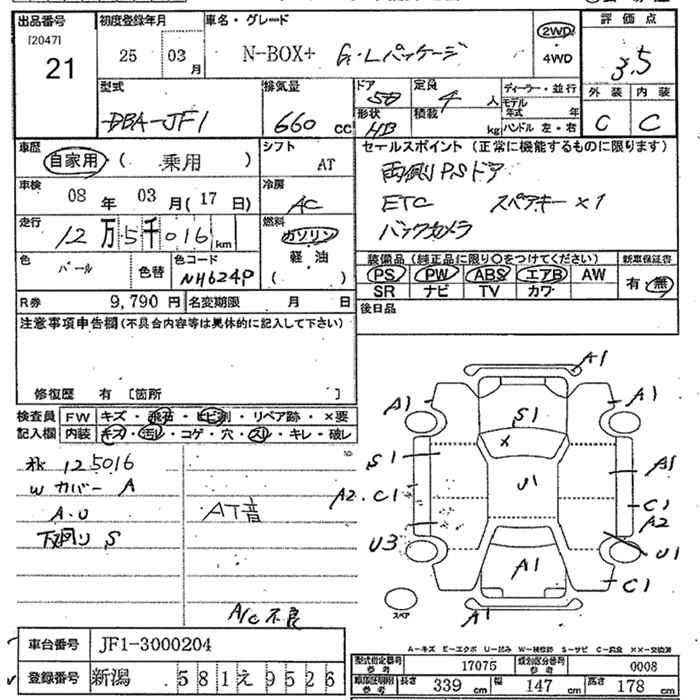 出品番号 初度登録年月 車名・グレード 評価点
[2047]
21 25 03月 N-BOX+ G・Lパッケージ 2WD・4WD 3.5
型式 排気量 ドア 定員 ディーラー・並行 外装 内装
DBA-JF1 660cc 5D 4人 モデル年式 年 C C
形状 積載
HB kg ハンドル 左・右
車歴 シフト セールスポイント(正常に機能するものに限ります)
自家用(乗用) AT 両側PSドア
車検 冷房 ETC スペアキー×1
08年03月(17日) AC バックカメラ
走行 燃料
12万5千016km ガソリン
軽・油
( )
色 色替 色コード 装備品(純正品に限り〇をつけてください) 新車保証書
パール NH624P PS PW ABS エアB AW 有・無
SR ナビ TV カワ
R券 9,790円 名変期限 月 日 後日品
注意事項申告欄(不具合内容等は具体的に記入して下さい)
修復歴 有 [箇所 ]
検査員 FW キズ・飛石・ヒビ割・リペア跡・×要
記入欄 内装 キズ・汚レ・コゲ・穴・スレ・キレ・破レ
125016
Wカバー A
A・U AT音
下廻り S
A/C不良
A1
A1 A1
S1
S1 A1
A2 C1 U1 C1
A2
U3 U1
A1 C1
スペア A1
A-キズ E-エクボ U-凹み W-補修跡 S-サビ C-腐食 ××-交換済
車台番号 JF1-3000204
登録番号 新潟 581え9526
型式指定番号 参考 17075 類別区分番号 参考 0008
参考 長さ 339cm 幅 147cm 高さ 178cm